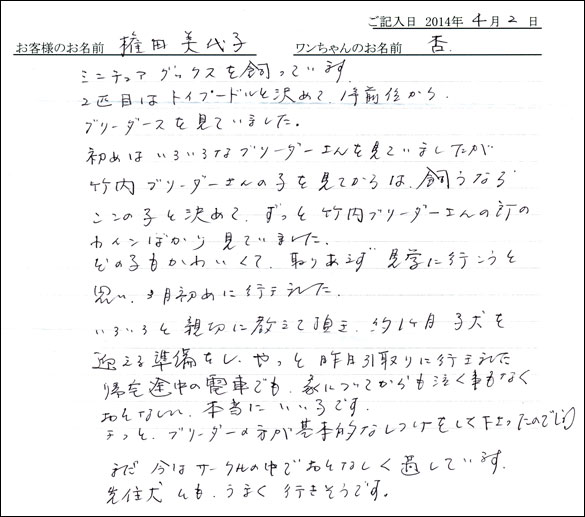 ご記入日 2014年 4月 2日
お客様のお名前 権田 美代子 ワンちゃんのお名前 杏.
ミニチュアダックスを飼っています.
2匹目はトイプードルと決めて、1年前位から.
ブリーダースを見ていました.
初めはいろいろなブリーダーさんを見ていましたが
竹内ブリーダーさんの子を見てからは、飼うなら
ここの子と決めて、ずっと竹内ブリーダーさんの所の
ワインばかり見ていました.
どの子もかわいくて、取りあえず見学に行こうと
思い、3月初めに行きました.
いろいろと親切に教えて頂き、約1ヶ月子犬を
迎える準備をし、やっと昨日引取りに行きました
帰宅途中の電車でも、家についてからも泣く事もなく
おとなしい、本当にいい子です.
きっと、ブリーダーの方が基本的なしつけをして下さったのでしょう
まだ今はサークルの中でおとなしく過しています.
先住犬とも、うまく行きそうです.